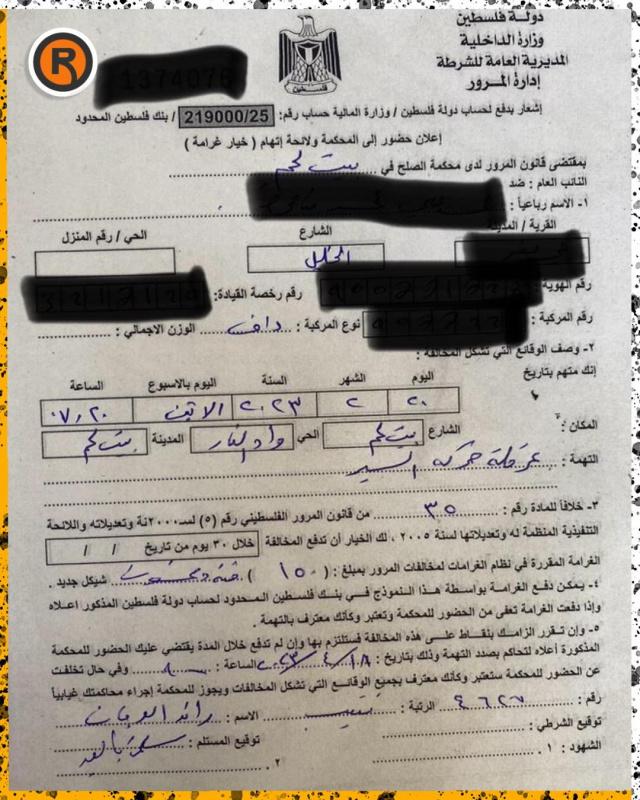 R
دولة فلسطين
وزارة الداخلية
المديرية العامة للشرطة
إدارة المرور
فلسطين
1374076
إشعار بدفع لحساب دولة فلسطين / وزارة المالية حساب رقم: 219000/25 / بنك فلسطين المحدود
إعلان حضور إلى المحكمة ولائحة إتهام ( خيار غرامة )
بمقتضى قانون المرور لدى محكمة الصلح في بيت لحم
النائب العام : ضد
١- الاسم رباعياً :
القرية / المدينة الشارع الحي / رقم المنزل
الخليل
رقم الهوية : رقم رخصة القيادة:
رقم المركبة : نوع المركبة : داف الوزن الاجمالي :
٢- وصف الوقائع التي تشكل المخالفة :
إنك متهم بتاريخ
اليوم الشهر السنة اليوم بالاسبوع الساعة
٢٠ ٢ ٢٠٢٣ الاثنين ٠٧,٢٠
المكان : الشارع بيت لحم الحي واد النار المدينة بيت لحم
التهمة : عرقلة حركة السير
٣- خلافاً للمادة رقم : ٣٥ من قانون المرور الفلسطيني رقم (٥) لسـ٢٠٠٠نة وتعديلاته واللائحة
التنفيذية المنظمة له وتعديلاتها لسنة ٢٠٠٥ ، لك الخيار أن تدفع المخالفة خلال ٣٠ يوم من تاريخ / /
الغرامة المقررة في نظام الغرامات لمخالفات المرور بمبلغ : ( ١٥٠ ) شيكل جديد .
٤- يمكن دفع الغرامة بواسطة هذا النموذج في بنك فلسطين المحدود لحساب دولة فلسطين المذكور اعلاه
وإذا دفعت الغرامة تعفى من الحضور للمحكمة وتعتبر وكأنك معترف بالتهمة .
٥- وإن تقرر الزامك بنقاط على هذه المخالفة فستلتزم بها وإن لم تدفع خلال المدة يقتضي عليك الحضور للمحكمة
المذكورة أعلاه لتحاكم بصدد التهمة وذلك بتاريخ : ٢٠٢٣/٤/١٨ الساعة : ٨٠٠ وفي حال تخلفت
عن الحضور للمحكمة ستعتبر وكأنك معترف بجميع الوقائع التي تشكل المخالفات ويجوز للمحكمة إجراء محاكمتك غيابياً
رقم : ٤٦٢٧ الرتبة : نقيب الاسم : رائد
توقيع الشرطي : توقيع المستلم :
الشهود : ١ . ٢ .